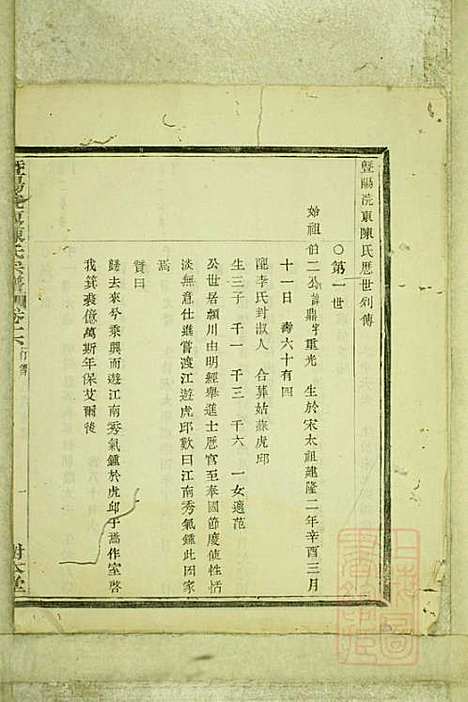 暨陽浣東陳氏歷世列傳
○第一世
始祖伯二公諱鼎字重光 生於宋太祖建隆二年辛酉三月
十一日 壽六十有四
配李氏封淑人 合葬姑蘇虎邱
生三子 千一 千三 千六 一女適范
公世居潁川由明經舉進士歷官至奉國節度使性恬
淡無意仕進嘗渡江遊虎邱歎曰江南秀氣鍾此因家
焉
贊曰
歸去來兮乘興而遊江南秀氣鍾於虎邱于焉作室啓
我箕裘億萬斯年保艾爾後
暨陽浣東陳氏宗譜
卷十六
行傳
一